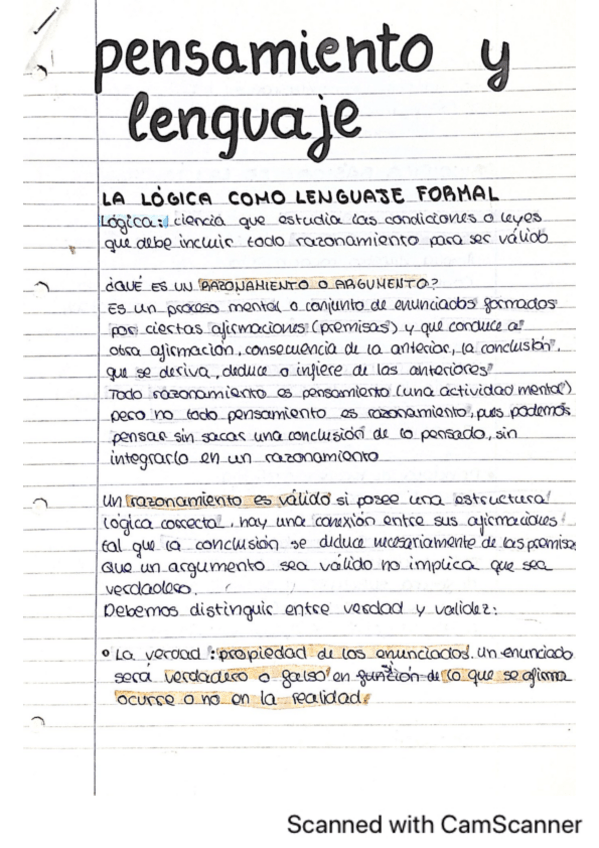 pensamiento y
lenguaje
LA LÓGICA COMO LENGUAJE FORMAL
Lógica: ciencia que estudia las condiciones o leyes
que debe incluir todo razonamiento para ser válido
¿QUÉ ES UN RAZONAMIENTO O ARGUMENTO?
Es un proceso mental o conjunto de enunciados formados
por ciertas afirmaciones (premisas) y que conduce a
otra afirmación, consecuencia de la anterior, la conclusión,
que se deriva, deduce o infiere de las anteriores
Todo razonamiento es pensamiento (una actividad mental)
pero no todo pensamiento es razonamiento, pues podemos
pensar sin sacar una conclusión de lo pensado, sin
integrarlo en un razonamiento
Un razonamiento es válido si posee una estructura
lógica correcta, hay una conexión entre sus afirmaciones
tal que la conclusión se deduce necesariamente de las premisa
Que un argumento sea válido no implica que sea
verdadero.
Debemos distinguir entre verdad y validez:
• La verdad: propiedad de los enunciados. Un enunciado
será verdadero o falso en función de lo que se afirma
ocurre o no en la realidad.
Scanned with CamScanner